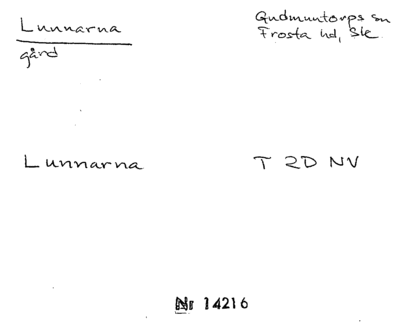 Lunnarna
Gudmuntorps sn
gård
Frosta hd, Ske
Lunnarna
T 2D NV
Nr 14216